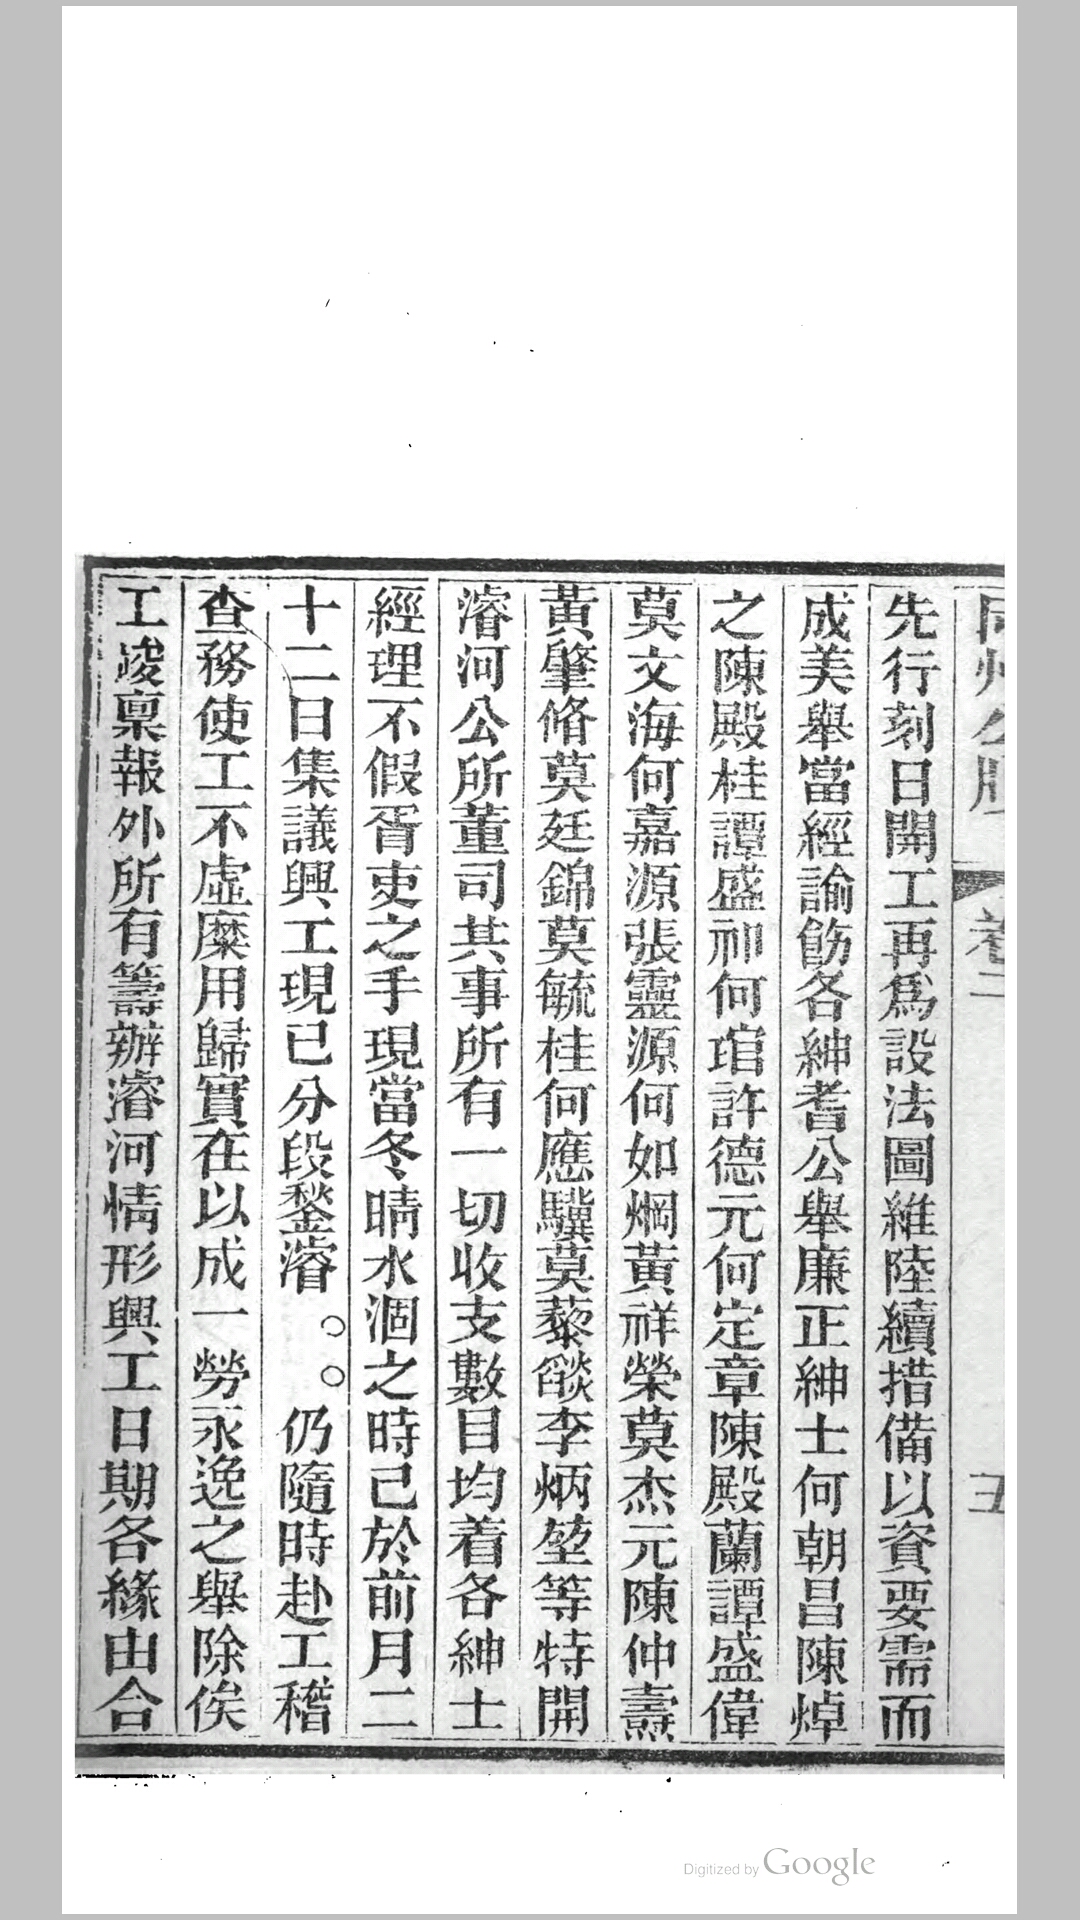 卷二
先行刻日開工再爲設法圖維陸續措備以資要需而
成美舉當經諭飭各紳耆公舉廉正紳士何朝昌陳焯
之陳殿桂譚盛祁何琯許德元何定章陳殿蘭譚盛偉
莫文海何嘉源張靈源何如烱黃祥榮莫杰元陳仲壽
黃肇脩莫廷錦莫毓桂何應驥莫藜燄李炳堃等特開
濬河公所董司其事所有一切收支數目均着各紳士
經理不假胥吏之手現當冬晴水涸之時已於前月二
十二日集議興工現已分段鍫濬○○仍隨時赴工稽
查務使工不虛糜用歸實在以成一勞永逸之舉除俟
工竣稟報外所有籌辦濬河情形興工日期各緣由合
Digitized by Google